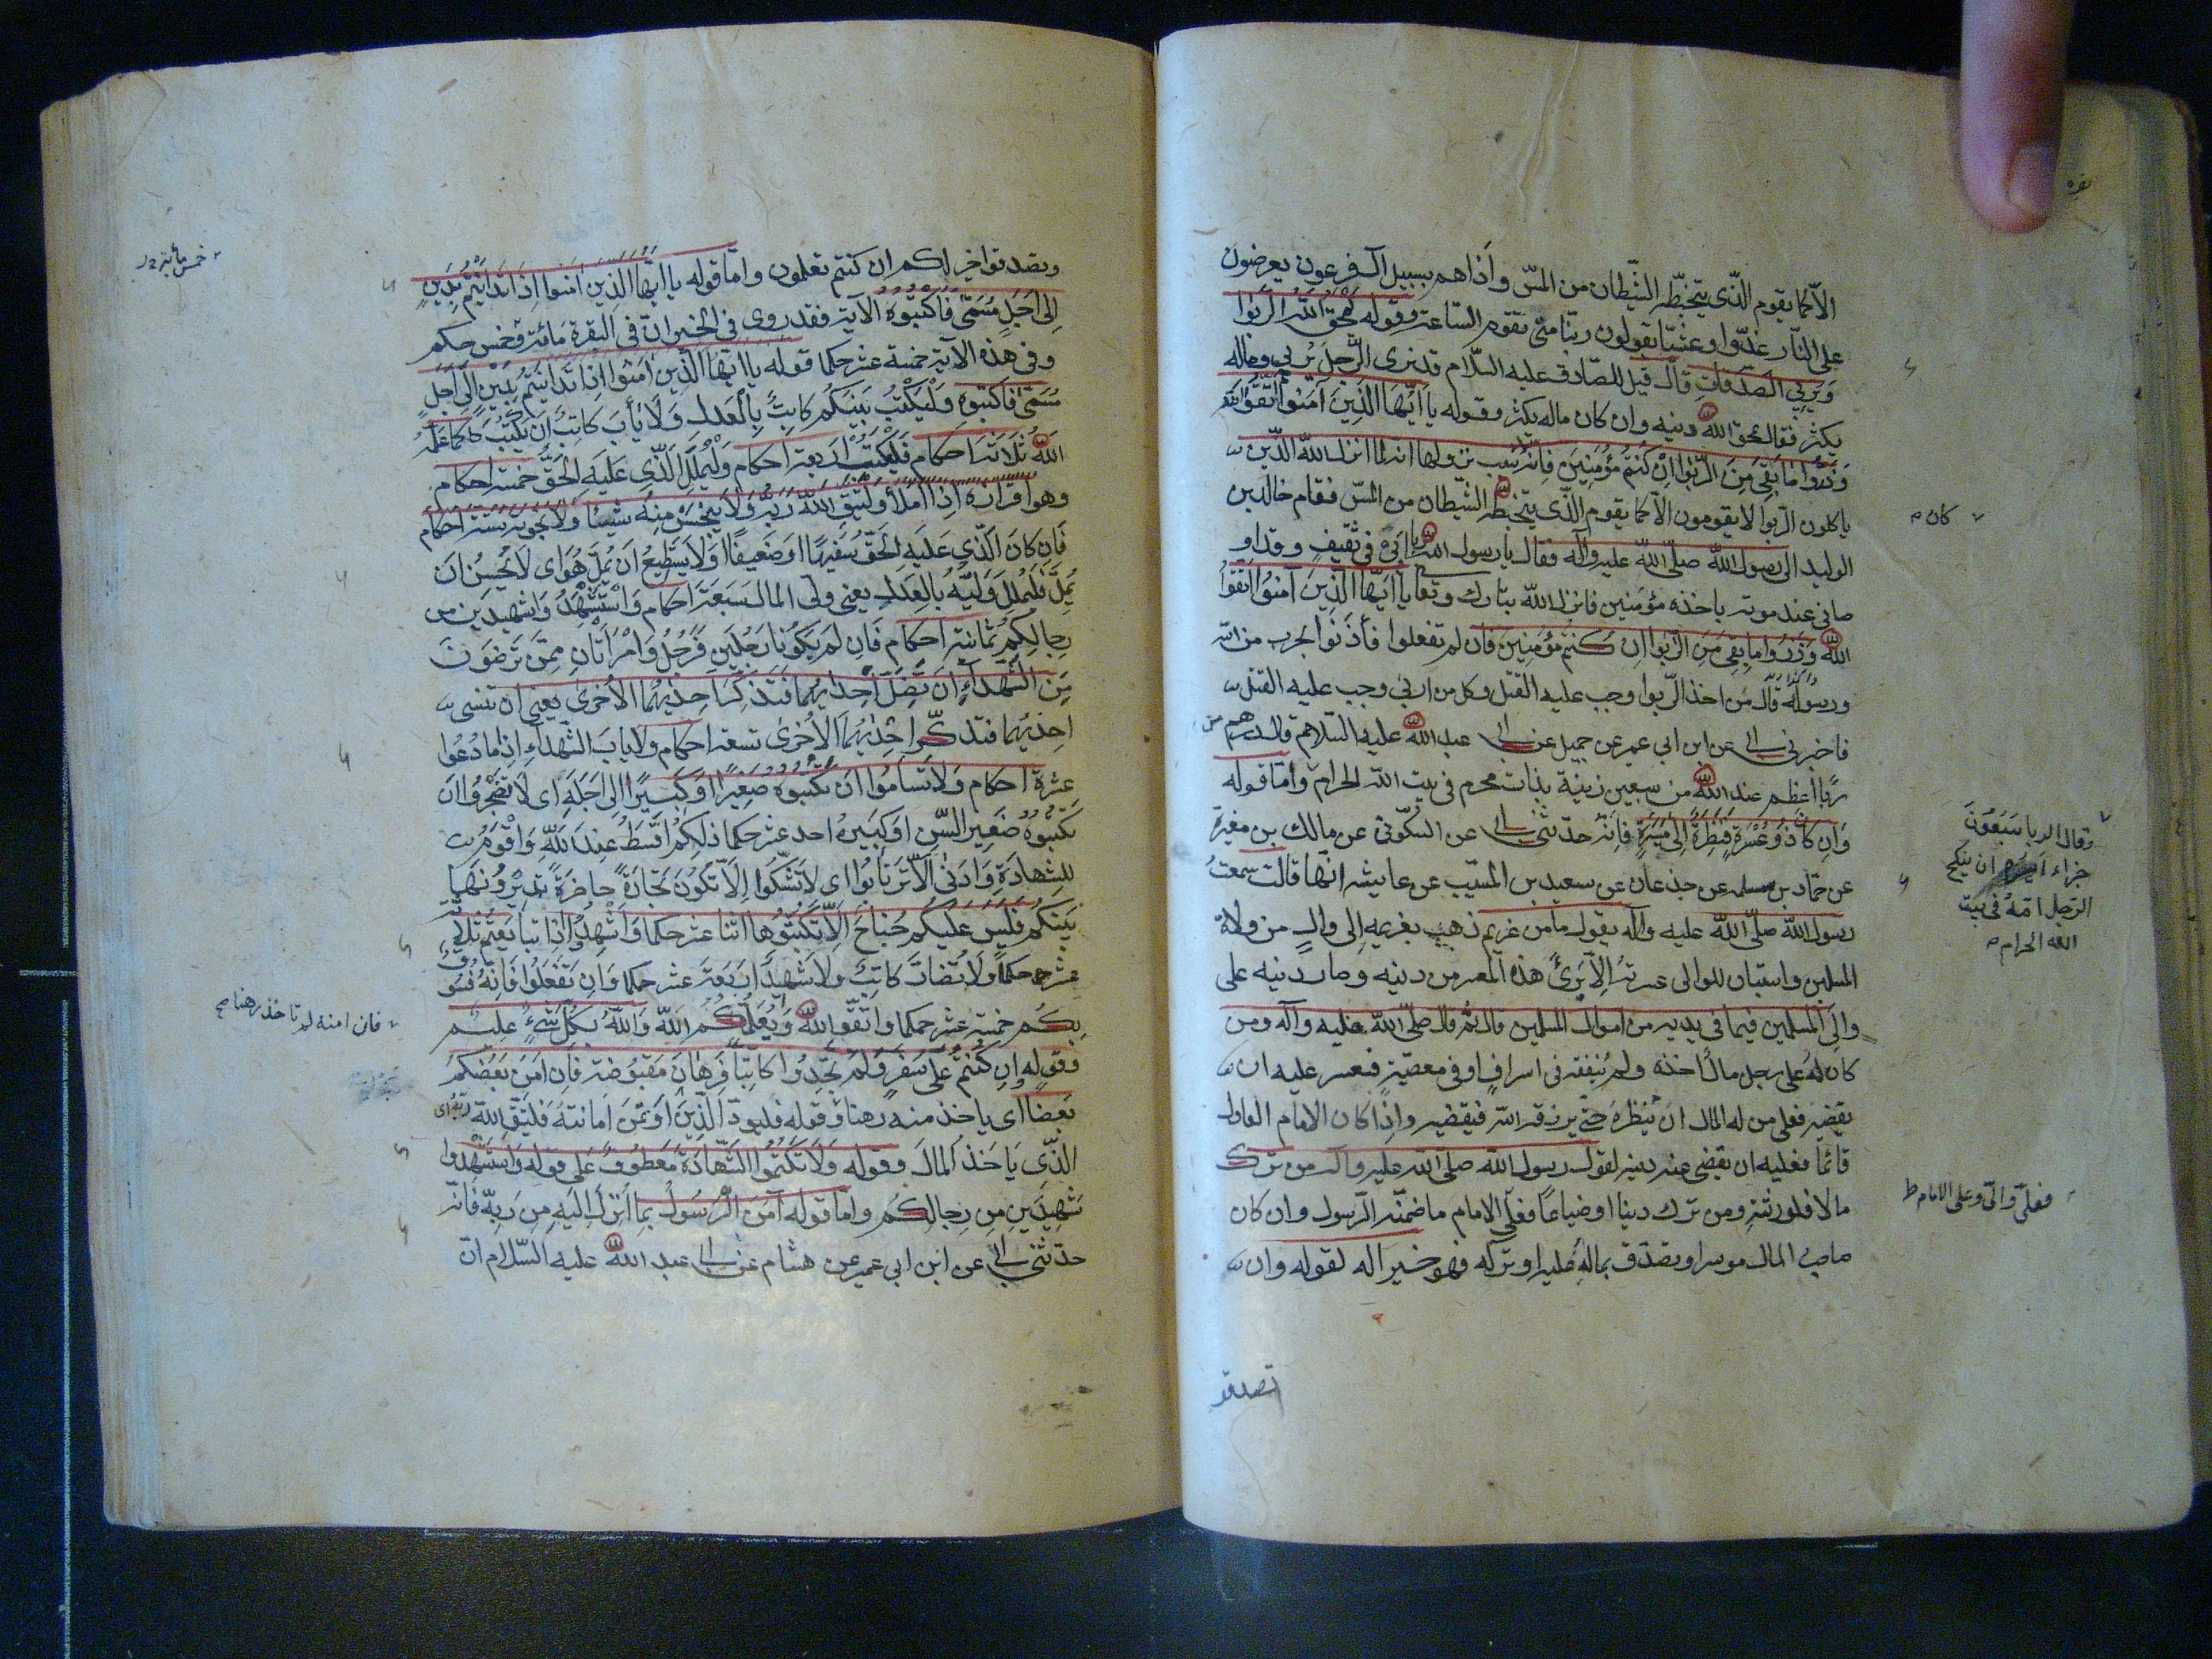 بقره
الّا كما يقوم الّذى يتخبّطه الشّيطان من المسّ واذا هم بسبيل آل فرعون يعرضون
على النّار غدّوا وعشيّا يقولون ربّنا متى تقوم السّاعة وقوله يَمْحَقُ اللهُ الرِّبوا
وَيُرْبِي الصّدقاتِ قال قيل للصّادق عليه السّلام قد نرى الرَّجل يُربي وماله
يكثر فقال يمحق الله دينه وان كان ماله يكثر وقوله يا اَيُّهَا الَّذِينَ آمَنُوا اتَّقُوا الله
وَذَرُوا مَا بَقِيَ مِنَ الرِّبوا اِنْ كُنتُم مُؤْمِنِينَ فانه سبب نزولها انه لما انزل اللّه الّذين
ياكلون الرّبوا لا يقومون الّا كما يقوم الّذى يتخبطه الشّيطان من المسّ فقام خالد بن
كان
الوليد الى رسول اللّه صلّى اللّه عليه وآله فقال يا رسول الله ربا ابى فى ثقيف وقد او
صانى عند موته باخذه مؤمنين فانزل اللّه تبارك وتعا يا اَيُّهَا الَّذِينَ آمَنُوا اتَّقُوا
الله وَذَرُوا ما بَقِىَ مِنَ الرِّبوا اِن كُنتُم مُؤمِنِينَ فَان لم تفعلوا فأذَنُوا بحرب من اللّه
ورسوله قال مَن اخذ الرّبوا وجب عليه القتل وكل من اربى وجب عليه القتل
فاخبرنى ابى عن ابن ابى عمير عن جميل عن ابى عبد الله عليه السّلام قال درهم من
ربًا اعظم عند الله من سبعين زينة بذات محرم فى بيت اللّه الحرام وامّا قوله
وقال الربا سَبعُونَ
جزاء ان ينكح
الرّجل امّهُ فى بيت
الله الحرام
وَاِن كَانَ ذُو عُسْرَةٍ فَنِظَرَةٌ اِلى مَيْسَرَةٍ فانه حدّثنى ابى عن السّكونىّ عن مالك بن مغيرة
عن حمّاد بن سلمه عن جذعان عن سعيد بن المسيّب عن عايشه انّها قالت سمعتُ
رسول اللّه صلّى اللّه عليه وآله يقول ما من غريم ذهب بغريمه الى والٍ من ولاة
المسلمين واستبان للوالى عسرته اِلّا بَرِئَ هذا المعسر من دينه وصار دينه على
والِى المسلمين فيما فى يديه من اموال المسلمين قال ثم قال صلّى اللّه عليه وآله ومن
كان لهُ على رجل مالٌ اخذه ولم يُنفقه فى اسرافٍ او فى معصيّةٍ فعسر عليه ان
يقضيه فعلى من له المال ان يُنظِرهُ حتّى يرزقه اللّه فيقضيه واذا كان الامام العادل
قائما فعليه ان يقضى عنه دينه لقول رسول اللّه صلّى اللّه عليه وآله من ترك
مالا فلورثته ومن ترك دينا او ضياعًا فعلى الامام ما ضمنه الرّسول وان كان
فعلىّ والىّ وعلى الامام ط
صاحب المال موسرا وتصدّق بماله عليه او تركه فهو خير له لقوله وان
تصدقوا
وتصدقوا خير لكم ان كنتم تعلمون وامّا قوله يا ايّها الَّذين آمنوا اِذا تداينتم بِدَينٍ
اِلى اَجَلٍ مُسَمّىً فَاكتُبُوهُ الآية فقد روى فى الخبر انّ فى البقرة مائة وخمس حكم
خمس مائة
وفى هذه الآية خمسة عشر حكما قوله يا اَيُّهَا الَّذِينَ آمَنُوا اِذا تَدايَنتُم بِدَينٍ اِلَى اَجَلٍ
مُسَمّىً فَاكتُبُوهُ وَلْيَكْتُب بَيْنَكُم كاتِبٌ بِالعَدل وَلَا يَأبَ كاتِبٌ اَن يَكتُبَ كَما عَلَّمَهُ
اللهُ ثَلاثة احكام فَليَكتُب اربعة احكام وَلْيُملِلِ الَّذِى عَلَيهِ الحَقُّ خمسة احكام
وهو اقراره اِذا املأ وَلْيَتَّقِ اللهَ رَبَّهُ وَلَا يَبخَسْ مِنهُ شَيئًا وَلَا يخونه ستّة احكام
فَاِن كانَ الَّذِى عَلَيهِ الحَقُّ سَفِيهًا اَو ضَعِيفًا اَو لا يَستَطِيعُ اَن يُمِلَّ هُوَ اى لا يُحسِن ان
يُمِلّ فَليُملِل وَلِيُّهُ بِالعَدلِ يعنى ولى المال سَبعة احكام وَاسْتَشهِدُوا شَهِيدَينِ مِن
رِجالِكُم ثمانية احكام فَاِن لَم يَكُونا رَجُلَينِ فَرَجُلٌ وَامرَأتانِ مِمَّن تَرضَونَ
مِنَ الشُّهَداءِ اَن تَضِلَّ اِحدٰيهُما فَتُذَكِّرَ اِحديهُمَا الاُخرى يعنى ان تنسى
احديهما فتذكّر احديهُمَا الاُخرى تسعة احكام ولا ياب الشّهداء اِذا ما دُعُوا
عشرة احكام وَلا تَسأمُوا اَن تَكتُبُوهُ صَغِيرًا اَو كَبِيرًا اِلى اَجَلِهِ اى لا تضجروا ان
تكتبُوهُ صَغِير السّن او كَبيرهُ احد عشر حكما ذلِكُم اَقسَطُ عِندَ اللهِ وَاَقوَمُ
لِلشَّهادَةِ وَاَدنى اَلّا تَرتابُوا اى لا تشكّوا اِلّا اَن تَكُونَ تِجارَةً حاضِرَةً تُدِيرُونَها
بَينَكُم فَلَيسَ عَلَيكُم جُناحٌ اَلّا تَكتُبُوها اثنا عشر حكما وَاَشهِدُوا اِذا تَبايَعتُم ثلاثة
عشر حكمًا وَلا يُضارَّ كاتِبٌ وَلا شَهِيدٌ اربعة عشر حكما وَاِن تَفعَلُوا فَاِنَّهُ فُسُوقٌ
بِكُم خمسة عشر حكما واتّقوا اللهَ وَيُعَلِّمُكُمُ اللهُ وَاللهُ بِكُلِّ شَىءٍ عَلِيم
فان امنه لم تاخذ رهنا صح
وَقوله وان كُنتُم عَلى سَفَرٍ وَلَم تَجِدُوا كاتِبًا فَرِهانٌ مَقبُوضَة فَاِن اَمِنَ بَعضُكُم
بَعضًا اى ياخذ منه رهنا وقوله فليؤدّ الَّذى اؤتُمِنَ اَمانَتَهُ فَليَتَّقِ اللهَ رَبّهُ اى
الّذى يَاخذ المالَ وقوله وَلا تَكتُمُوا الشَّهادَةَ مَعطوفٌ عَلى قوله وَاسْتَشهِدوا
شَهِيدَينِ مِن رِجالِكُم وامّا قوله آمَنَ الرَّسُولُ بِما اُنزِلَ اِلَيهِ مِن رَبِّهِ فانّه
حدّثنى ابى عن ابن ابى عمير عن هشام عن ابى عبد الله عليه السّلام انّ